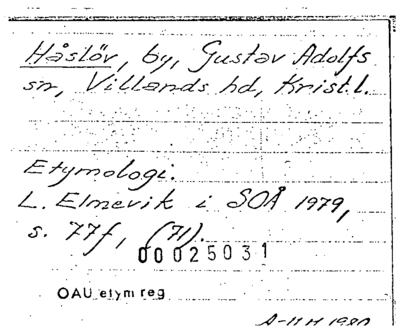 Håslöv, by, Gustav Adolfs
sn, Villands hd, Kristl.
Etymologi.
L. Elmevik i SOÅ 1979,
s. 77f, (71).
00025031
OAU etym reg
A-MH 1980